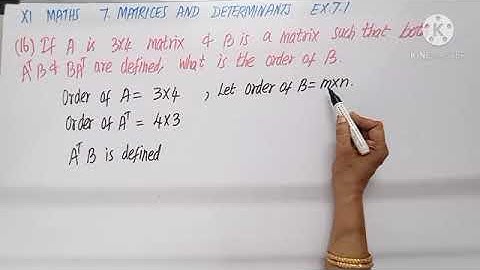 XI MATHS 7. MATRICES AND DETERMINANTS EX.7.1
(16) If A is 3x4 matrix & B is a matrix such that both
AᵀB & BAᵀ are defined, what is the order of B.
Order of A = 3x4 , Let order of B = mxn.
Order of Aᵀ = 4x3
AᵀB is defined